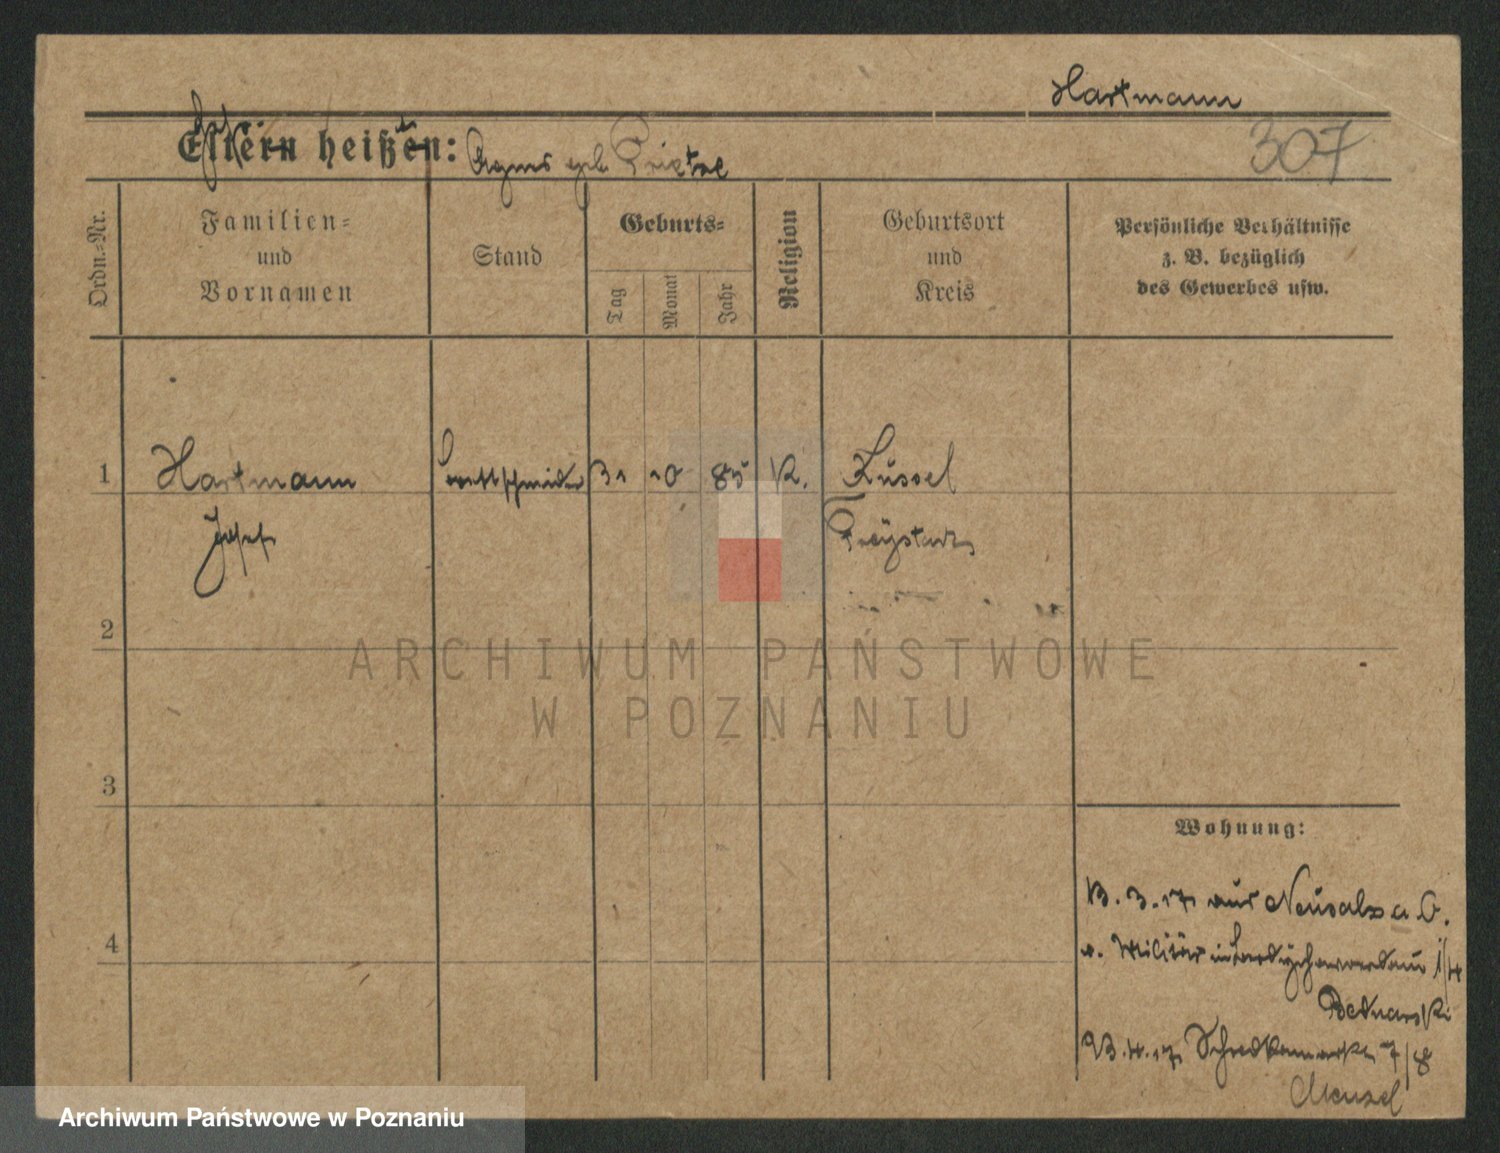 Hartmann
307
Eltern heißen: Agnes geb.
Ordn.-Nr.
Familien-
und
Vornamen
Stand
Geburts-
Tag
Monat
Jahr
Religion
Geburtsort
und
Kreis
Persönliche Verhältnisse
z. B. bezüglich
des Gewerbes usw.
1 Hartmann 31 10 85 K. Küssel
Josef Freystadt
2
3
4
Wohnung:
13.3.17 aus Neusalz a O.
v. Militär in
Bednarski
23.4.17 7/8
Menzel
ARCHIWUM PAŃSTWOWE
W POZNANIU
Archiwum Państwowe w Poznaniu